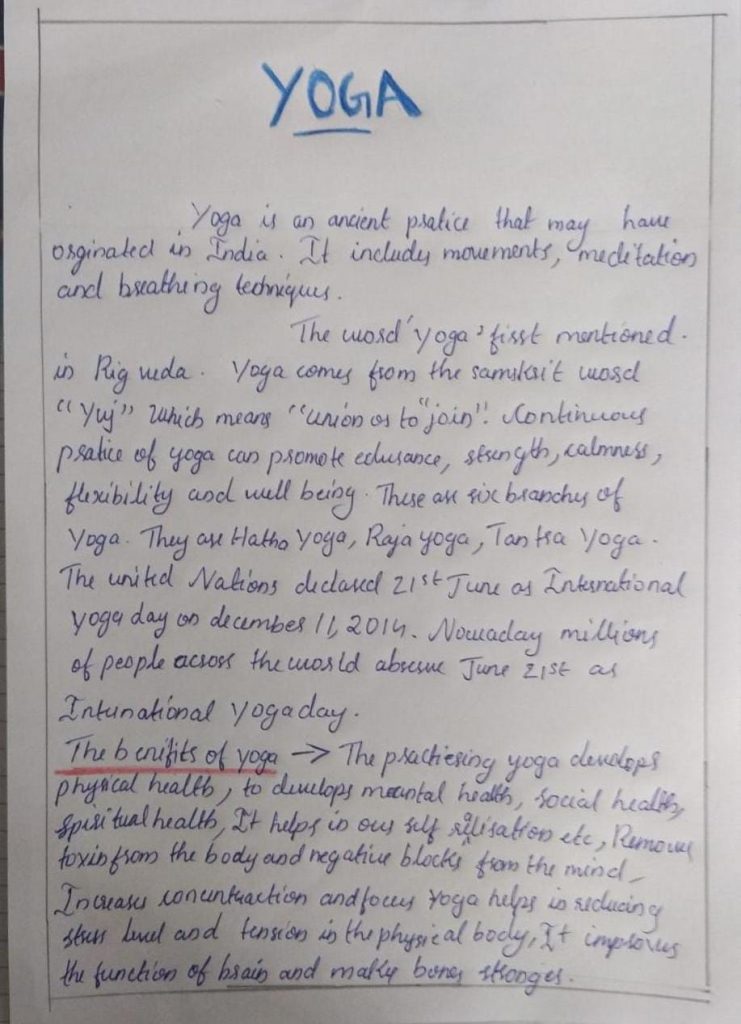 YOGA
Yoga is an ancient pratice that may have
orginated in India. It includes movements, meditation
and breathing techniques.
The word 'yoga' first mentioned.
in Rig veda. Yoga comes from the samskrit word
"Yuj" which means "union or to "join". Continuous
pratice of yoga can promote edurance, strength, calmness,
flexibility and well being. There are six branches of
Yoga. They are Hatha Yoga, Raja yoga, Tantra Yoga.
The united Nations declared 21st June as International
yoga day on december 11, 2014. Nowaday millions
of people across the world abserve June 21st as
International yoga day.
The benifits of yoga → The practiesing yoga develops
physical health, to develops meantal health, social health,
spiritual health, It helps in our self realisation etc, Removes
toxin from the body and negative blocks from the mind
Increases concentraction and focus yoga helps in reducing
stress level and tension in the physical body, It improves
the function of brain and makes bones stronger.